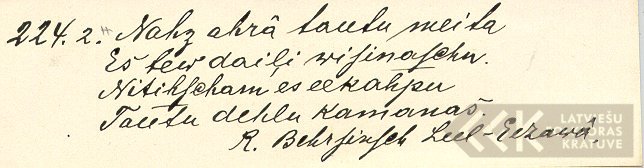 224. 2. Nahz ahrâ tautu meita
Es tew daiļi wisinaschu.
Nitihscham es eekahpu
Tautu dehlu kamanas.
R. Behrsinsch Leel-Eezawâ.
LATVIEŠU
FOLKLORAS
KRĀTUVE